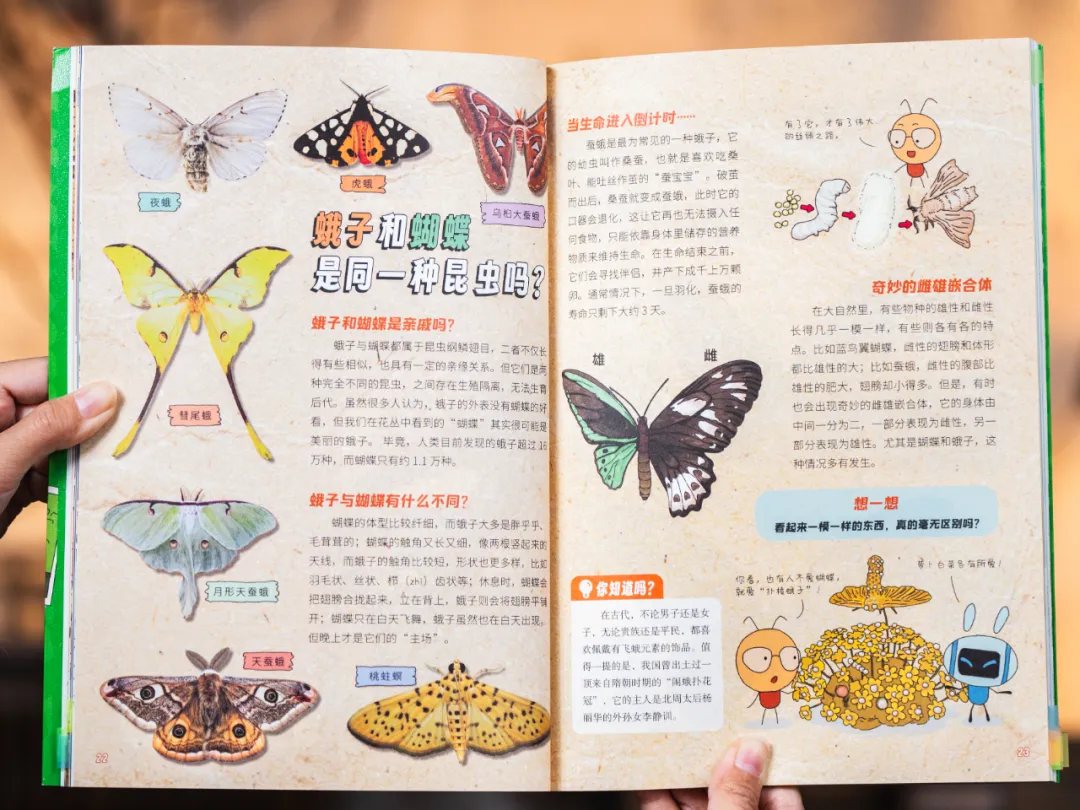 夜蛾
虎蛾
乌桕大蚕蛾
蛾子和蝴蝶
是同一种昆虫吗?
彗尾蛾
月形天蚕蛾
天蚕蛾
桃蛀螟
蛾子和蝴蝶是亲戚吗?
蛾子与蝴蝶都属于昆虫纲鳞翅目,二者不仅长
得有些相似,也具有一定的亲缘关系。但它们是两
种完全不同的昆虫,之间存在生殖隔离,无法生育
后代。虽然很多人认为,蛾子的外表没有蝴蝶的好
看,但我们在花丛中看到的“蝴蝶”其实很可能是
美丽的蛾子。毕竟,人类目前发现的蛾子超过 16
万种,而蝴蝶只有约 1.1 万种。
蛾子与蝴蝶有什么不同?
蝴蝶的体型比较纤细,而蛾子大多是胖乎乎、
毛茸茸的;蝴蝶的触角又长又细,像两根竖起来的
天线,而蛾子的触角比较短,形状也更多样,比如
羽毛状、丝状、栉(zhì)齿状等;休息时,蝴蝶会
把翅膀合拢起来,立在背上,蛾子则会将翅膀平铺
开;蝴蝶只在白天飞舞,蛾子虽然也在白天出现,
但晚上才是它们的“主场”。
22
当生命进入倒计时……
蚕蛾是最为常见的一种蛾子,它
的幼虫叫作桑蚕,也就是喜欢吃桑
叶、能吐丝作茧的“蚕宝宝”。破茧
而出后,桑蚕就变成蚕蛾,此时它的
口器会退化,这让它再也无法摄入任
何食物,只能依靠身体里储存的营养
物质来维持生命。在生命结束之前,
它们会寻找伴侣,并产下成千上万颗
卵。通常情况下,一旦羽化,蚕蛾的
寿命只剩下大约 3 天。
有了它,才有了伟大
的丝绸之路。
雄
雌
奇妙的雌雄嵌合体
在大自然里,有些物种的雄性和雌性
长得几乎一模一样,有些则各有各的特
点。比如蓝鸟翼蝴蝶,雌性的翅膀和体形
都比雄性的大;比如蚕蛾,雌性的腹部比
雄性的肥大,翅膀却小得多。但是,有时
也会出现奇妙的雌雄嵌合体,它的身体由
中间一分为二,一部分表现为雌性,另一
部分表现为雄性。尤其是蝴蝶和蛾子,这
种情况多有发生。
想一想
看起来一模一样的东西,真的毫无区别吗?
你知道吗?
在古代,不论男子还是女
子,无论贵族还是平民,都喜
欢佩戴有飞蛾元素的饰品。值
得一提的是,我国曾出土过一
顶来自隋朝时期的“闹蛾扑花
冠”,它的主人是北周太后杨
丽华的外孙女李静训。
你看,也有人不爱蝴蝶,
就爱“扑棱蛾子”!
萝卜白菜各有所爱!
23